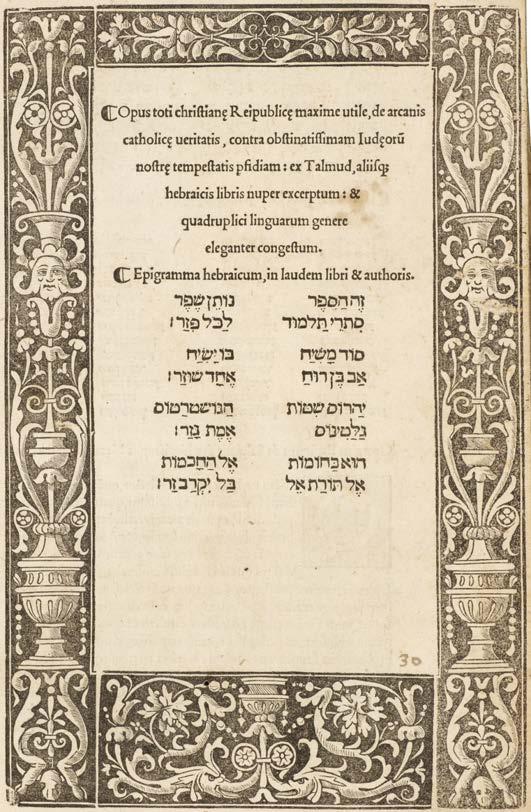 ⸿Opus toti christianę Reipublicę maxime utile, de arcanis
catholicę ueritatis, contra obstinatissimam Iudęorū
nostrę tempestatis ꝑfidiam: ex Talmud, aliisq;
hebraicis libris nuper excerptum: &
quadruplici linguarum genere
eleganter congestum.
⸿Epigramma hebraicum, in laudem libri & authoris.
זֶה הַסֵפֶר נוֹתֵן שֶׁפֶר
סִתְרֵי תַלְמוּד לַכֹל פִזַר׃
סוֹד מָשִׁיחַ בוֹ יָשִׂיחַ
אַב בֶן רוּחַ אֶחָד שׁוֹזַר׃
יַהֲרוֹס שִׁטּוֹת
גַלַטִינוֹס אֱמֶת גָזַר׃
הוּא כַחוֹמוֹת אֶל הַחָכְמוֹת
אֶל תּוֹרַת אֵל בַל יִקְרַב זָר׃
30